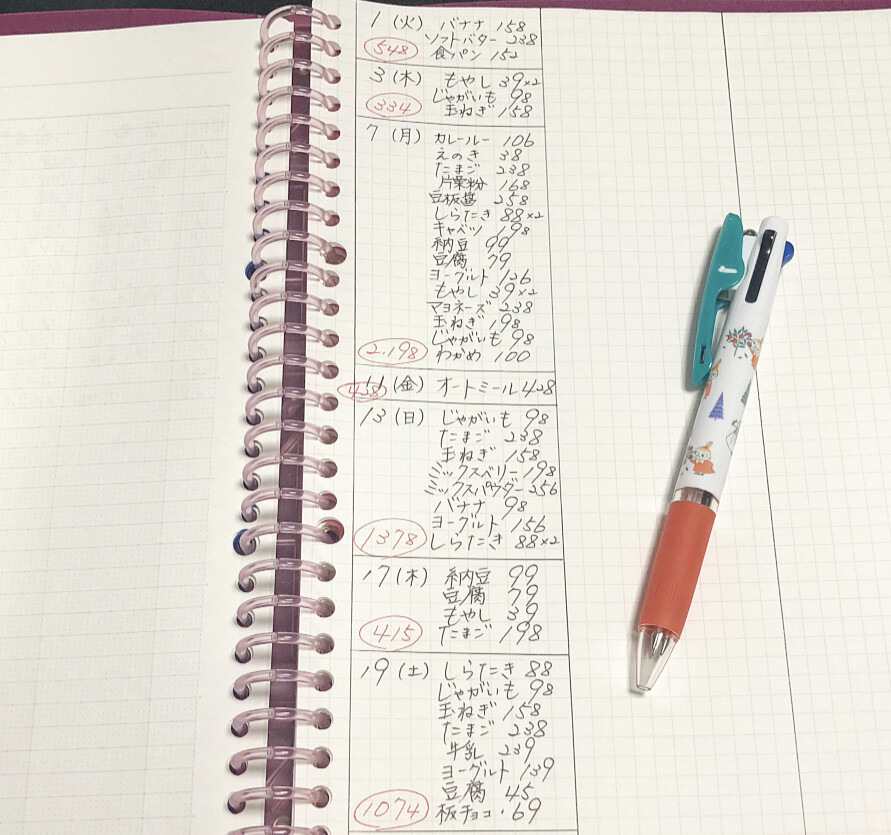 1 (火) バナナ 158
ソフトバター 238
548 食パン 152
3 (木) もやし 39×2
じゃがいも 98
334 玉ねぎ 158
7 (月) カレールー 106
えのき 38
たまご 238
片栗粉 168
豆板醤 258
しらたき 88×2
キャベツ 198
納豆 99
豆腐 79
ヨーグルト 126
もやし 39×2
マヨネーズ 238
玉ねぎ 198
じゃがいも 98
2.198 わかめ 100
11 (金) オートミール 428
13 (日) じゃがいも 98
たまご 238
玉ねぎ 158
ミックスベリー 198
ミックスパウダー 256
バナナ 98
ヨーグルト 156
1378 しらたき 88×2
17 (木) 納豆 99
豆腐 79
もやし 39
415 たまご 198
19 (土) しらたき 88
じゃがいも 98
玉ねぎ 158
たまご 238
牛乳 239
ヨーグルト 139
豆腐 45
1074 板チョコ・69